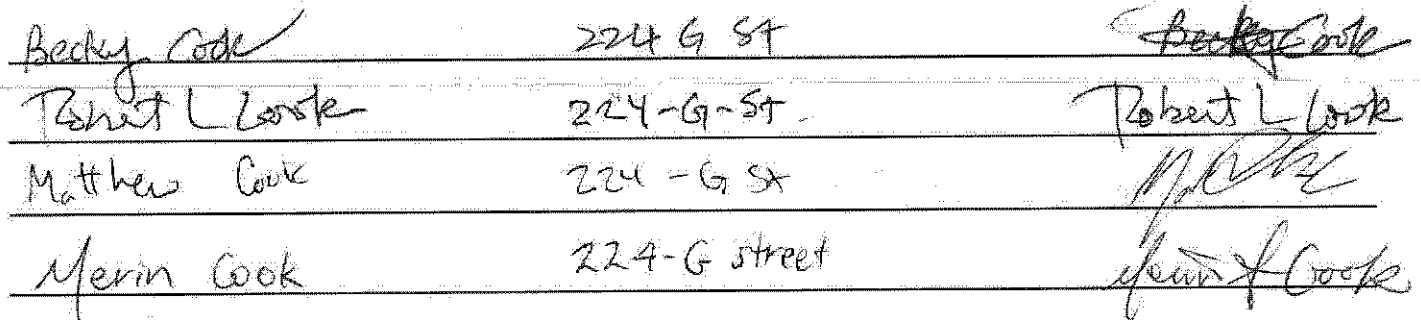 Becky Cook 224 G St Becky Cook
Robert L Cook 224-G-St. Robert L Cook
Matthew Cook 224-G St
Merin Cook 224-G street Merin L Cook